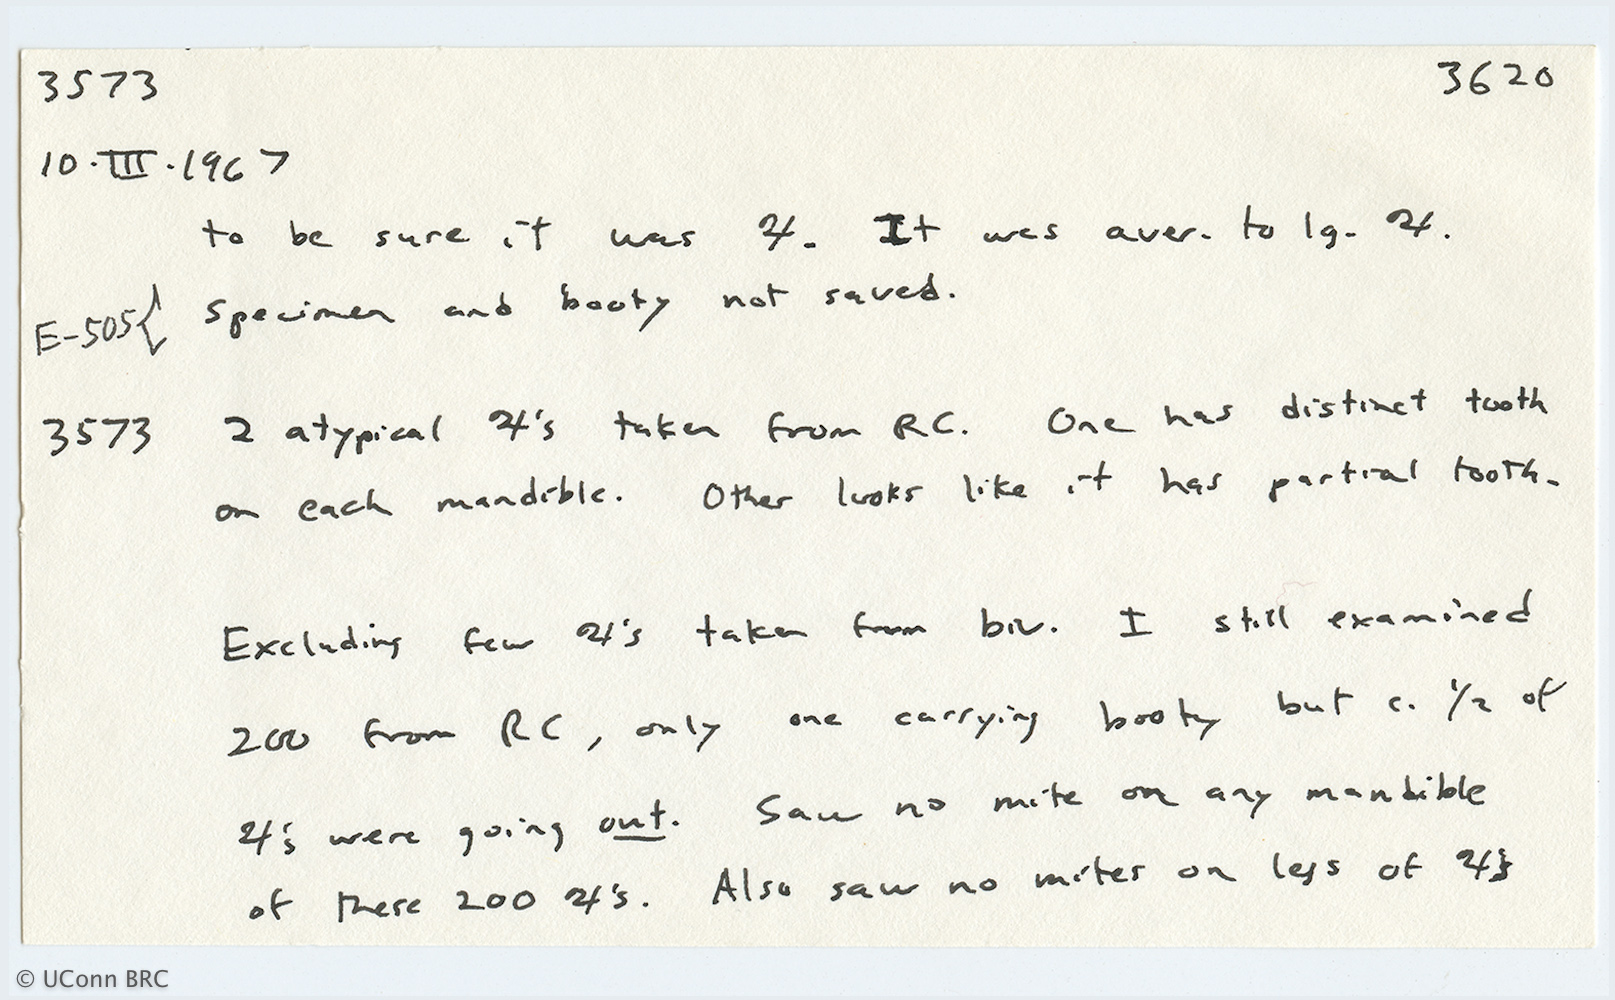 3573 3620
10·III·1967
to be sure it was ♃. It was aver. to lg. ♃.
E-505{ Specimen and booty not saved.
3573 2 atypical ♃'s taken from RC. One has distinct tooth
on each mandible. Other looks like it has partial tooth.
Excluding few ♃'s taken from biv. I still examined
200 from RC, only one carrying booty but c. 1/2 of
♃'s were going out. Saw no mite on any mandible
of these 200 ♃'s. Also saw no mites on legs of ♃'s
© UConn BRC